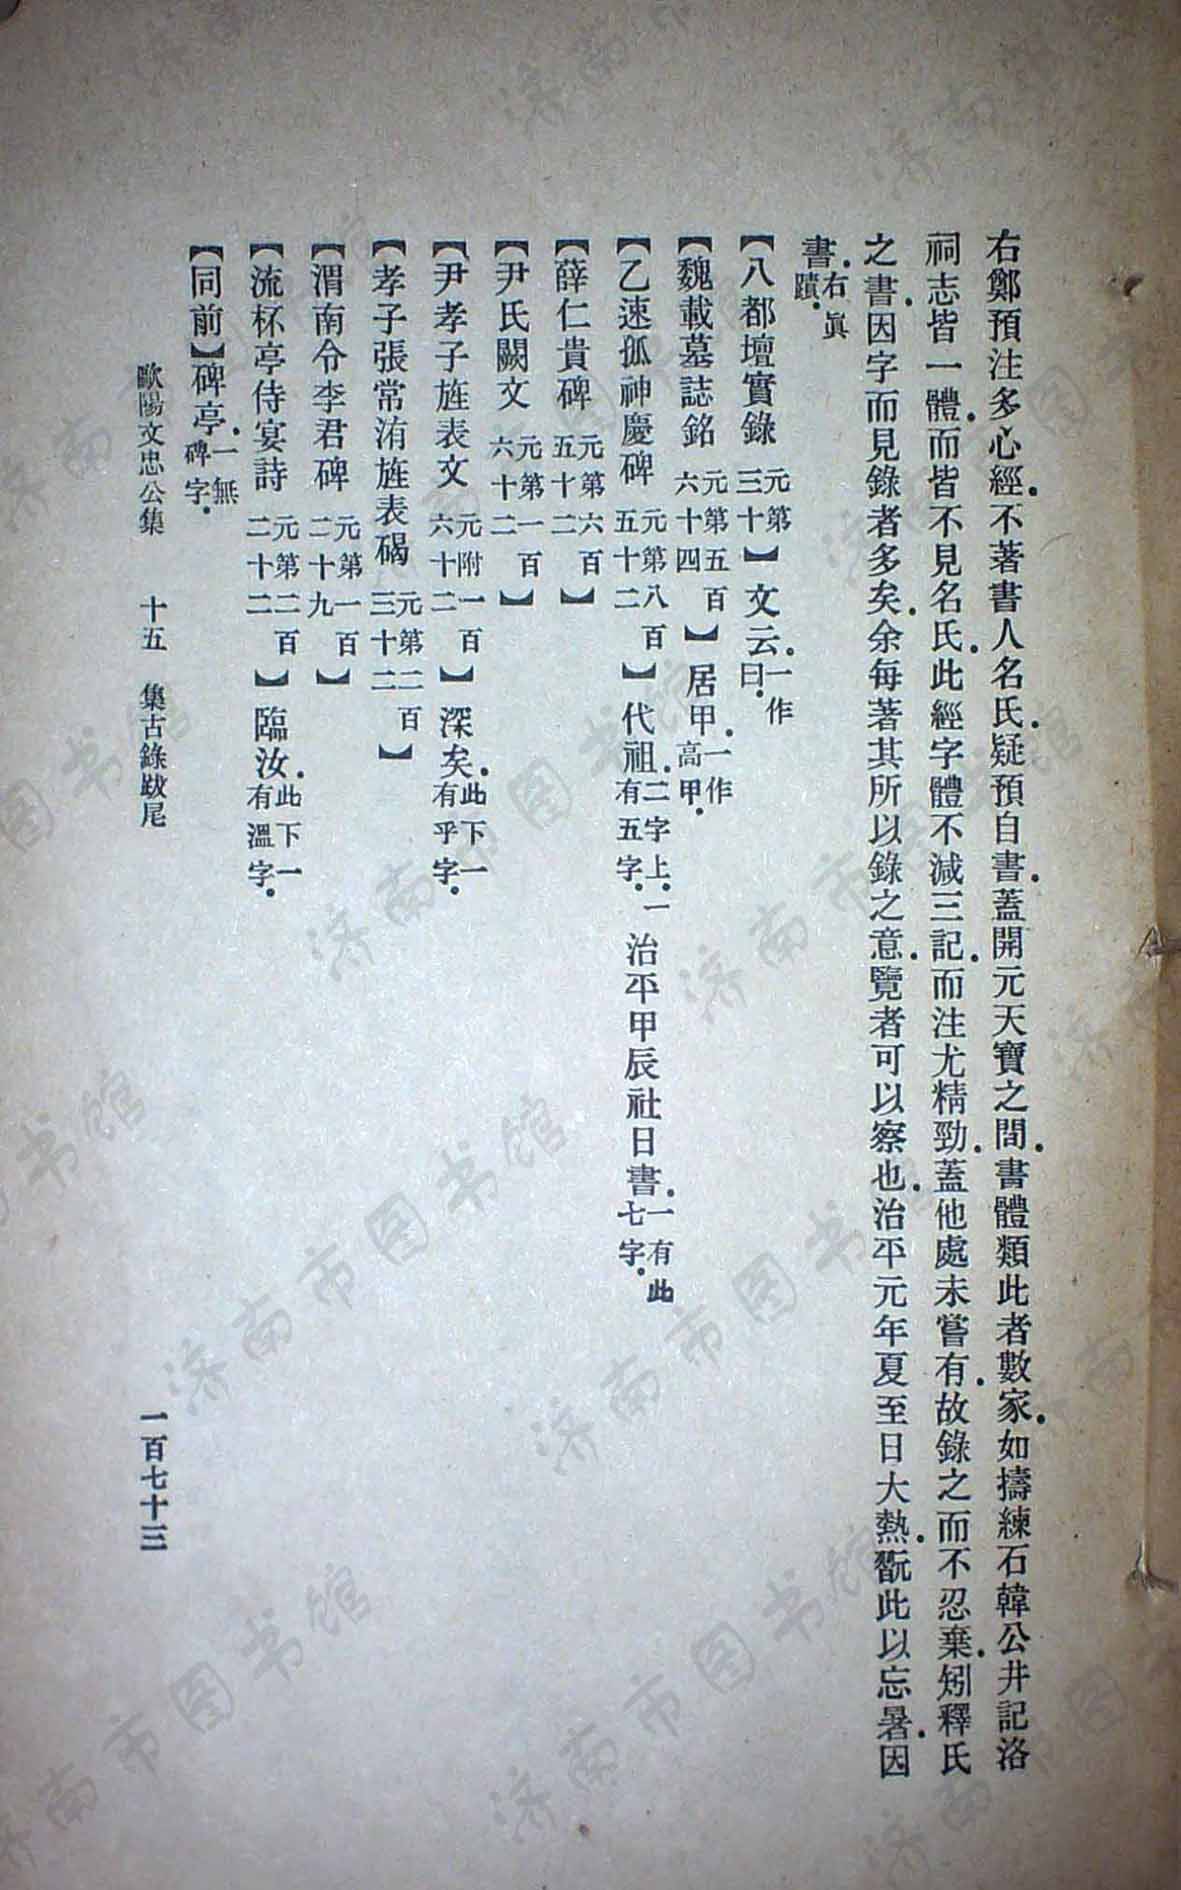 右鄭預注多心經.不著書人名氏.疑預自書.蓋開元天寶之間.書體類此者數家.如擣練石韓公井記洛
祠志皆一體.而皆不見名氏.此經字體不減三記.而注尤精勁.蓋他處未嘗有.故錄之而不忍棄.矧釋氏
之書.因字而見錄者多矣.余每著其所以錄之意.覽者可以察也.治平元年夏至日大熱.翫此以忘暑.因
書.右眞蹟.
【八都壇實錄元第三十】文云.一作曰.
【魏載墓誌銘元第五百六十四】居甲.一作高甲.
【乙速孤神慶碑元第八百五十二】代祖.二字上.一有五字.治平甲辰社日書.一有此七字.
【薛仁貴碑元第六百五十二】
【尹氏闕文元第一百六十二】
【尹孝子旌表文元附一百六十二】深矣.此下一有乎字.
【孝子張常洧旌表碣元第二百三十二】
【渭南令李君碑元第一百二十九】
【流杯亭侍宴詩元第二百二十二】臨汝.此下一有溫字.
【同前】碑亭.一無碑字.
歐陽文忠公集 十五 集古錄跋尾 一百七十三
济南市图书馆